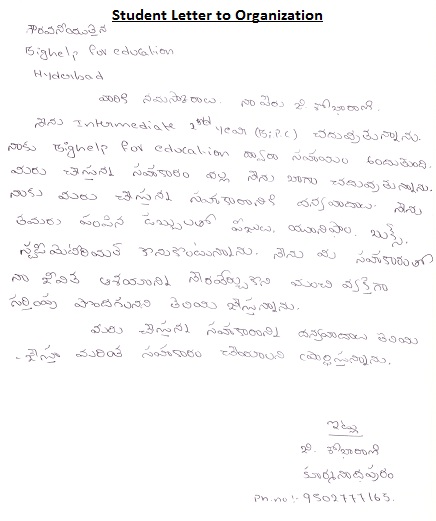 Student Letter to Organization
గౌరవనీయులైన
Bighelp for education
Hyderbad
వారికి నమస్కారాలు. నా పేరు జి శోభారాణి.
నేను Intermediate 2nd year (Bi.P.C) చదువుతున్నాను.
నాకు Bighelp for education ద్వారా సహాయం అందుతుంది.
మీరు చేస్తున్న సహకారం వల్ల నేను బాగా చదువుతున్నాను.
నాకు మీరు చేస్తున్న సహకారానికి ధన్యవాదాలు. నేను
తమరు పంపిన డబ్బులతో ఫీజులు, యూనిఫాం, బుక్స్,
స్టడీమెటీరియల్ కొనుకొంటున్నాను. నేను మీ సహకారంతో
నా జీవిత ఆశయాన్ని నెరవేర్చుకొని మంచి వ్యక్తిగా
పొందగలనని తెలియ చేస్తున్నాను.
మీరు చేస్తున్న సహకారానికి ధన్యవాదాలు తెలియ
చేస్తూ మరింత సహకారం చేయాలని ప్రార్థిస్తున్నాను.
ఇట్లు
జి. శోభారాణి
కూర్మనాధపురం
Ph.no :- 9502777165.